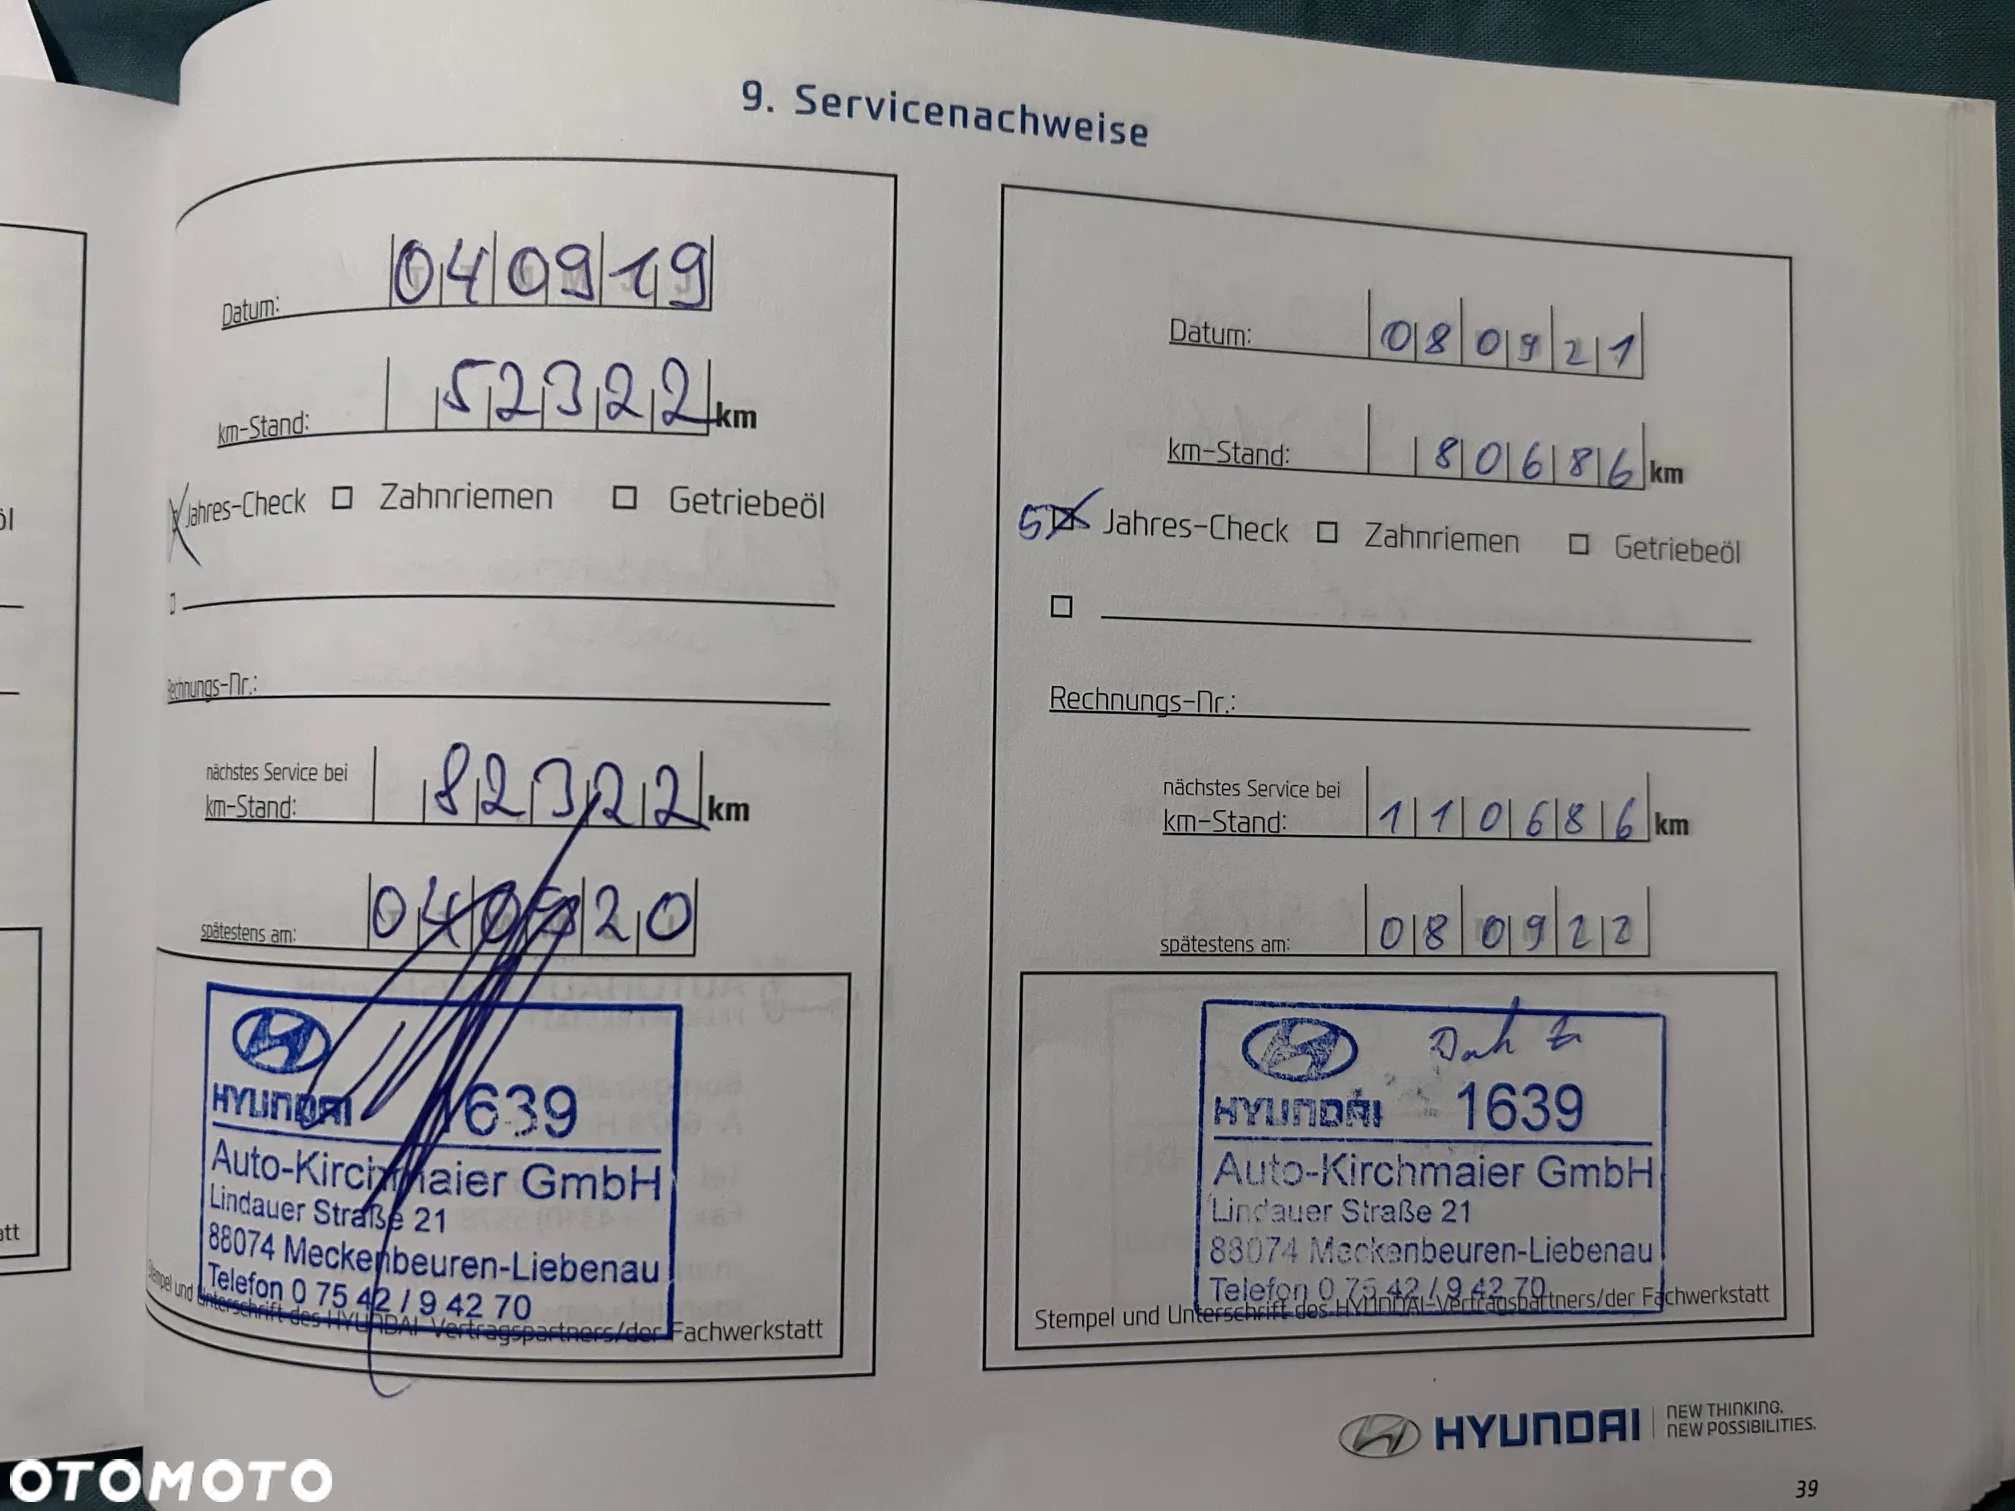 9. Servicenachweise
Datum: 040919
km-Stand: 52322 km
Jahres-Check Zahnriemen Getriebeöl
Rechnungs-Nr.:
nächstes Service bei
km-Stand: 82322 km
spätestens am: 040920
HYUNDAI 1639
Auto-Kirchmaier GmbH
Lindauer Straße 21
88074 Meckenbeuren-Liebenau
Telefon 0 75 42 / 9 42 70
Stempel und Unterschrift des HYUNDAI-Vertragspartners/der Fachwerkstatt
Datum: 080921
km-Stand: 80686 km
5 Jahres-Check Zahnriemen Getriebeöl
Rechnungs-Nr.:
nächstes Service bei
km-Stand: 110686 km
spätestens am: 080922
HYUNDAI 1639
Auto-Kirchmaier GmbH
Lindauer Straße 21
88074 Meckenbeuren-Liebenau
Telefon 0 75 42 / 9 42 70
Stempel und Unterschrift des HYUNDAI-Vertragspartners/der Fachwerkstatt
öl
att
HYUNDAI NEW THINKING.
NEW POSSIBILITIES.
39
OTOMOTO